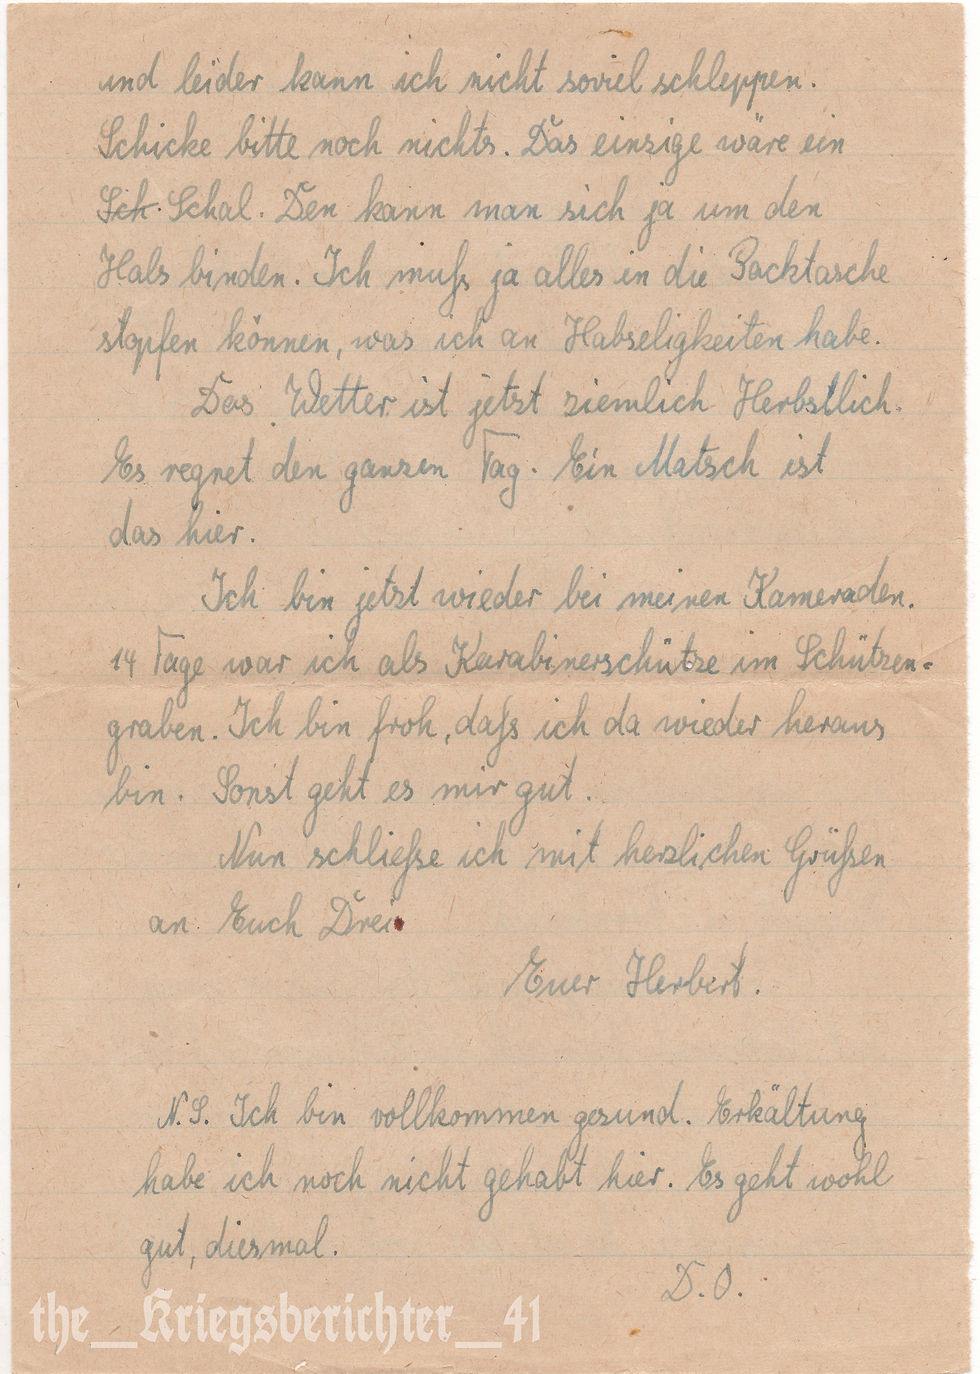 und leider kann ich nicht soviel schleppen.
Schicke bitte noch nichts. Das einzige wäre ein
Sch. Schal. Den kann man sich ja um den
Hals binden. Ich muß ja alles in die Packtasche
stopfen können, was ich an Habseligkeiten habe.
Das Wetter ist jetzt ziemlich Herbstlich.
Es regnet den ganzen Tag. Ein Matsch ist
das hier.
Ich bin jetzt wieder bei meinen Kameraden.
14 Tage war ich als Karabinerschütze im Schützen-
graben. Ich bin froh, daß ich da wieder heraus
bin. Sonst geht es mir gut.
Nun schließe ich mit herzlichen Grüßen
an Euch Drei
Euer Herbert.
N.S. Ich bin vollkommen gesund. Erkältung
habe ich noch nicht gehabt hier. Es geht wohl
gut, diesmal.
D.O.
the_Kriegsberichter_41